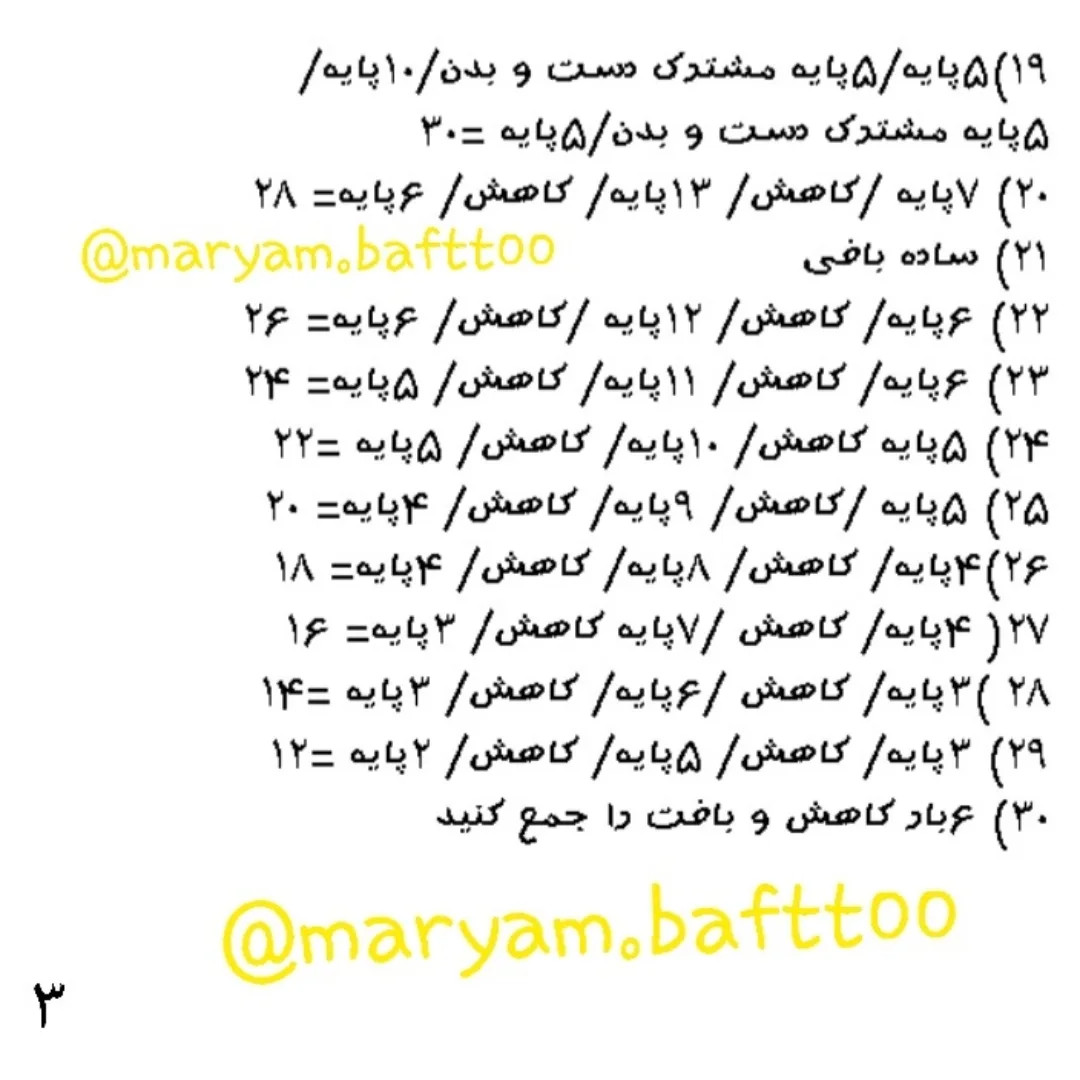 ۱۹)۵پایه/۵پایه مشترک دست و بدن/۱۰پایه/
۵پایه مشترک دست و بدن/۵پایه =۳۰
۲۰) ۷پایه /کاهش/ ۱۳پایه/ کاهش/ ۶پایه= ۲۸
۲۱) ساده بافی
@maryam.bafttoo
۲۲) ۶پایه/ کاهش/ ۱۲پایه /کاهش/ ۶پایه= ۲۶
۲۳) ۶پایه/ کاهش/ ۱۱پایه/ کاهش/ ۵پایه= ۲۴
۲۴) ۵پایه کاهش/ ۱۰پایه/ کاهش/ ۵پایه =۲۲
۲۵) ۵پایه /کاهش/ ۹پایه/ کاهش/ ۴پایه= ۲۰
۲۶)۴پایه/ کاهش/ ۸پایه/ کاهش/ ۴پایه= ۱۸
۲۷( ۴پایه/ کاهش /۷پایه کاهش/ ۳پایه= ۱۶
۲۸ )۳پایه/ کاهش /۶پایه/ کاهش/ ۳پایه =۱۴
۲۹) ۳پایه/ کاهش/ ۵پایه/ کاهش/ ۲پایه =۱۲
۳۰) ۶بار کاهش و بافت را جمع کنید
@maryam.bafttoo
۳